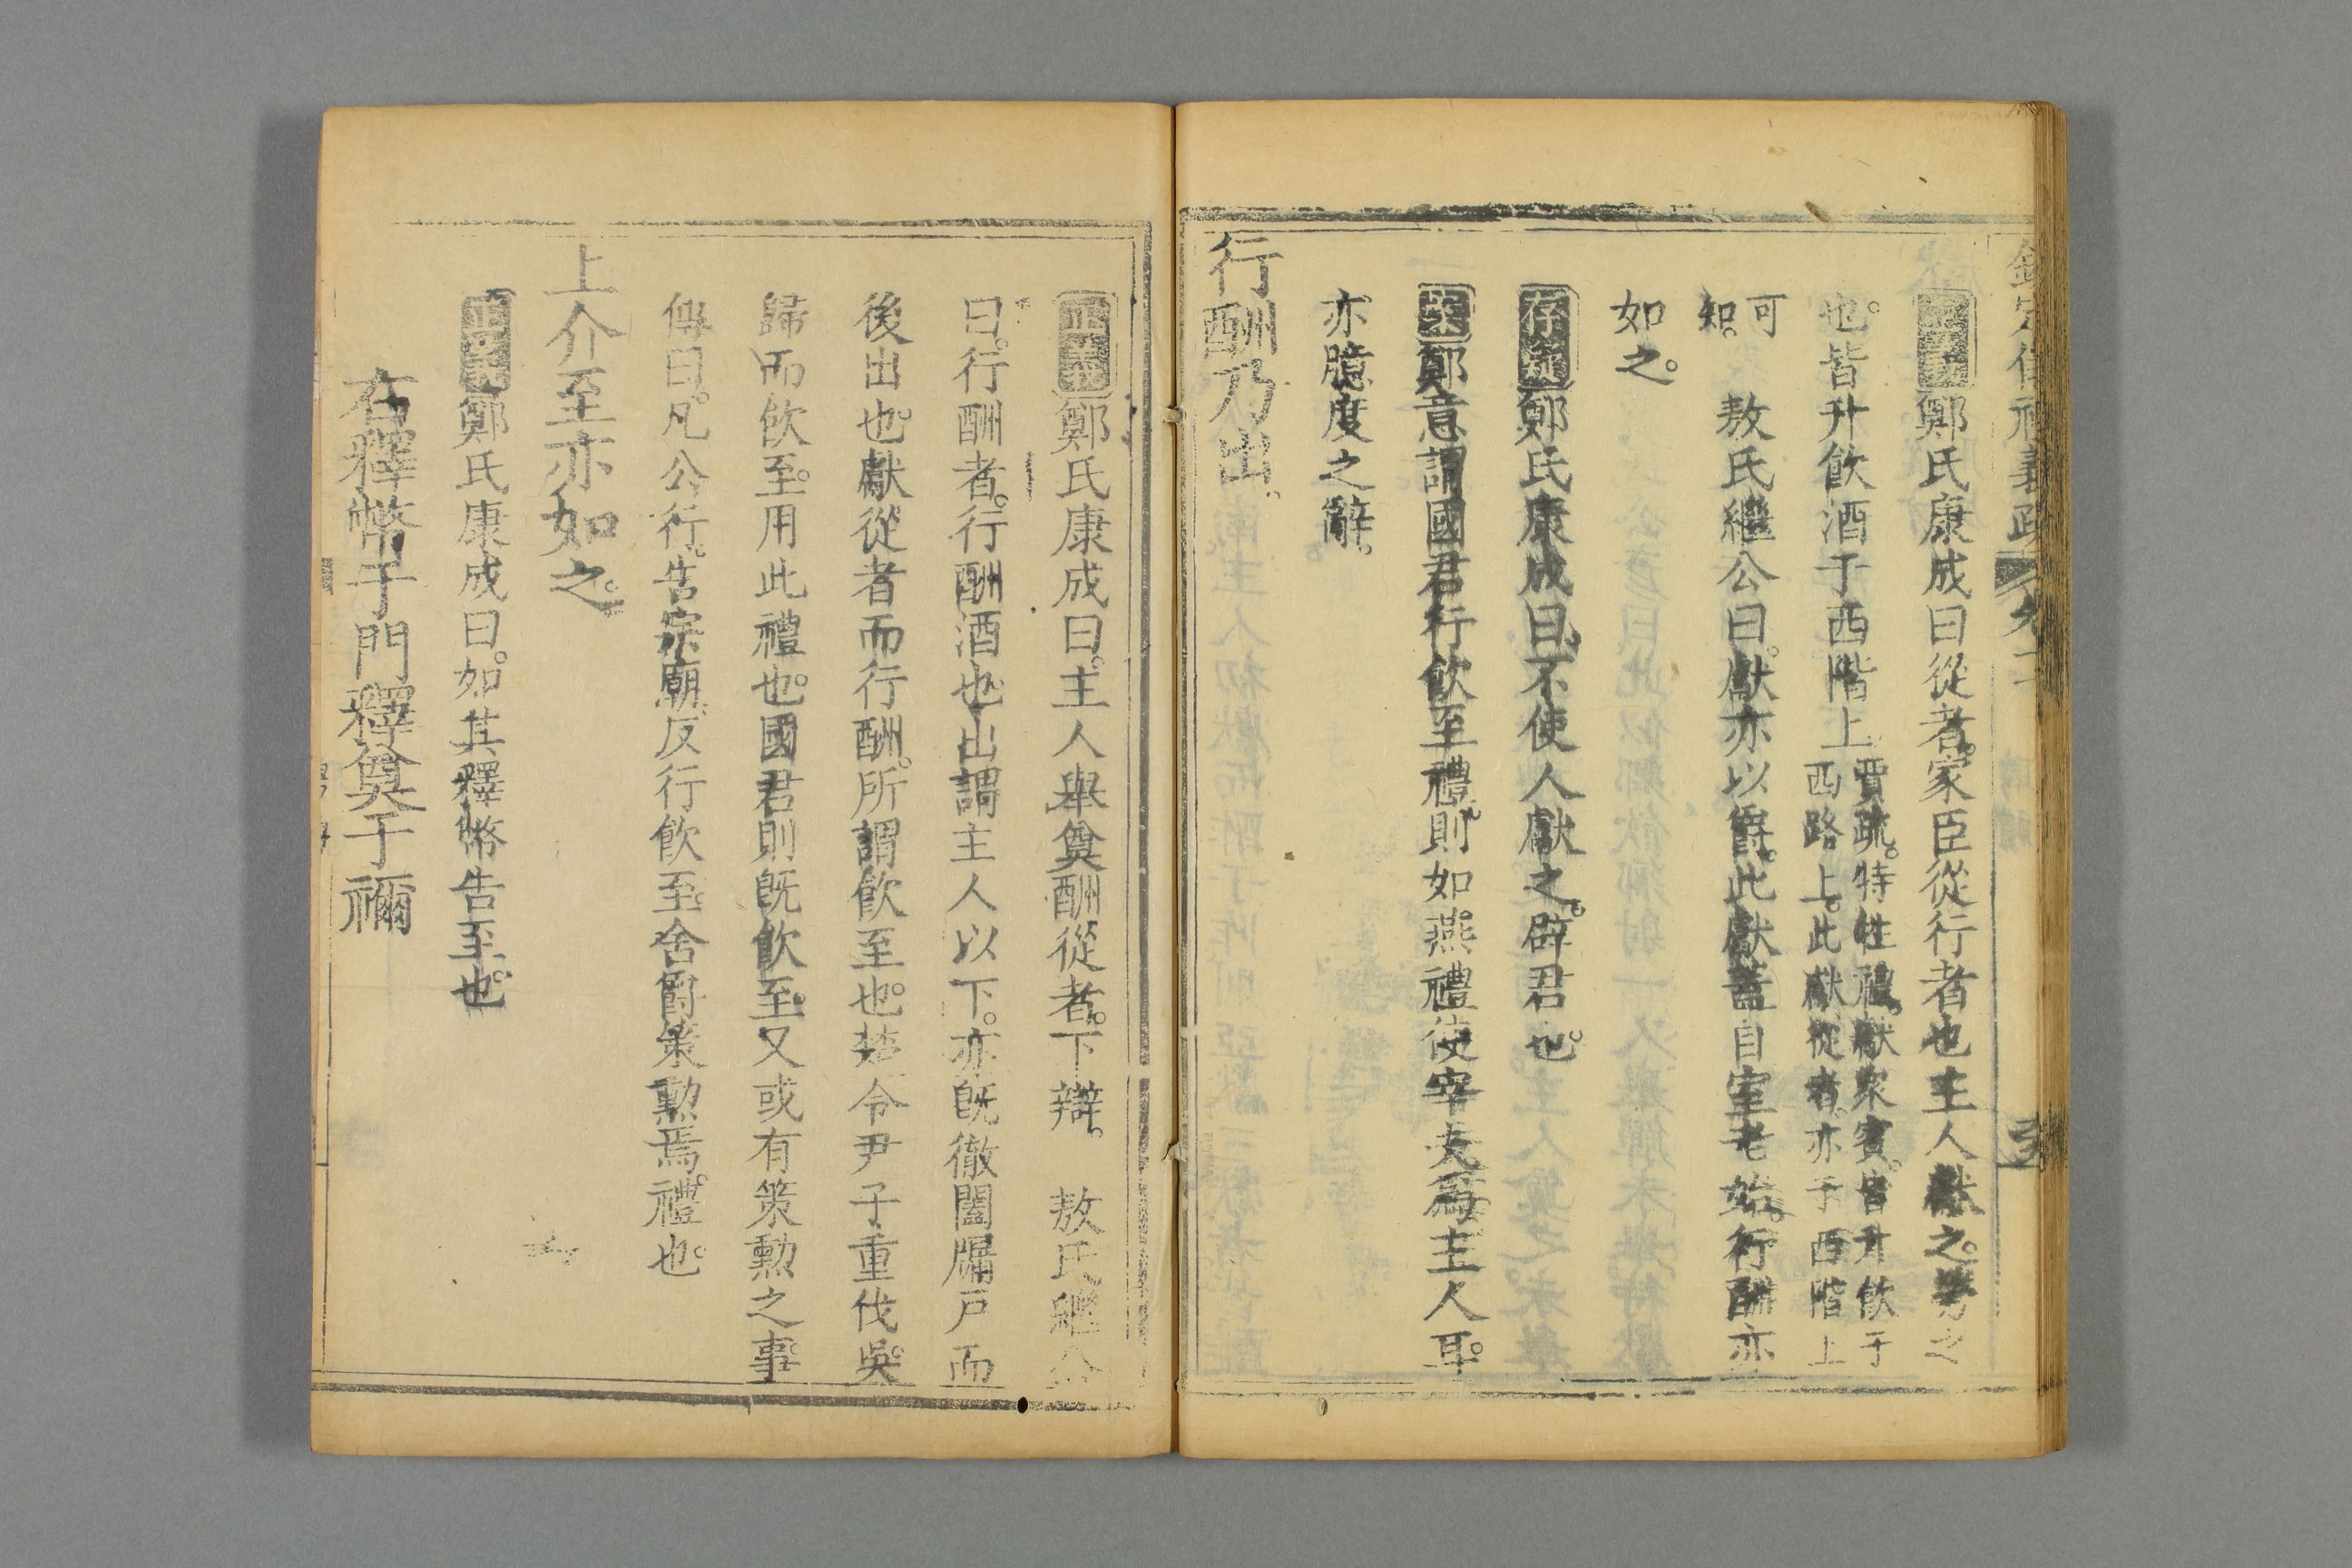 欽定儀禮義疏 卷十
正義鄭氏康成曰從者。家臣從行者也主人獻之。勞之
也。皆升飲酒于西階上賈疏。特牲禮。獻衆賓。皆升飲于西階上。此獻從者。亦于西階上
可知。 敖氏繼公曰。獻亦以爵。此獻蓋自室老始。行酬亦
如之。
存疑鄭氏康成曰。不使人獻之。辟君也。
案鄭意謂國君行飲至禮。則如燕禮使宰夫爲主人耳。
亦臆度之辭。
行酬乃出。
正義鄭氏康成曰。主人舉奠酬從者。下辯。 敖氏繼公
曰。行酬者。行酬酒也。出謂主人以下。亦既徹闔牖戶而
後出也。獻從者而行酬。所謂飲至也。楚令尹子重伐吳。
歸而飲至。用此禮也。國君則既飲至。又或有策勲之事。
傳曰。凡公行。告宗廟。反行飲至。舍爵策勲焉。禮也。
上介至亦如之。
正義鄭氏康成曰。如其釋幣告至也。
右釋幣于門釋奠于禰